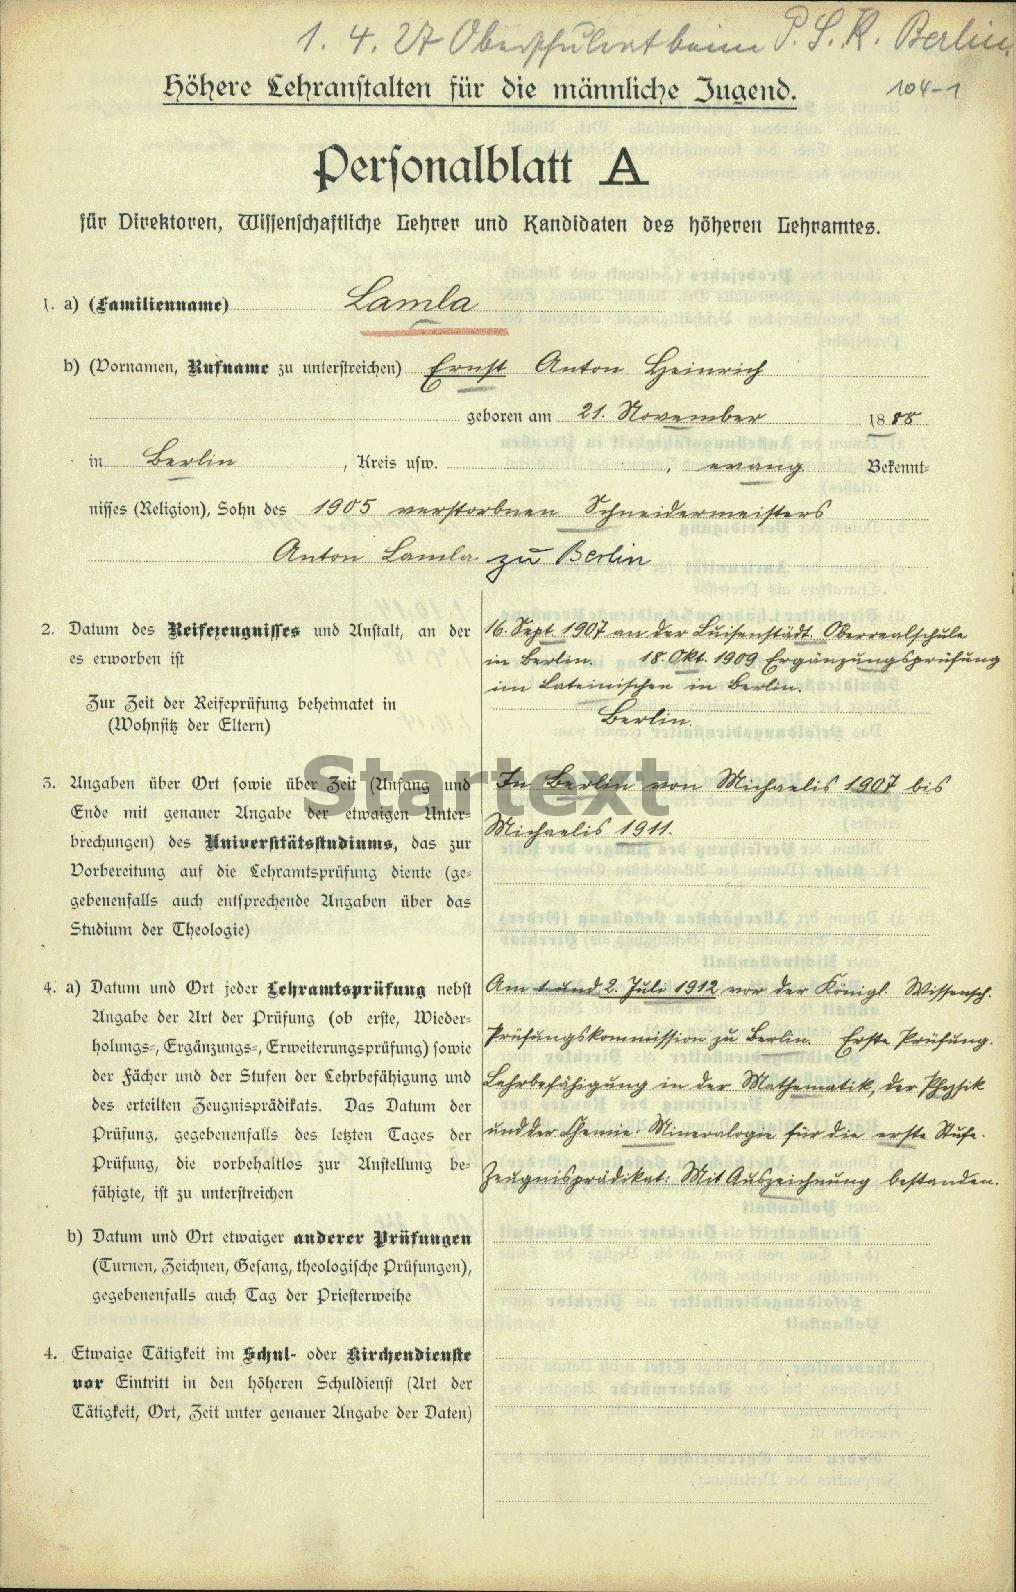 1. 4. 27 Oberschulrat beim P. S. K. Berlin
104-1
Höhere Lehranstalten für die männliche Jugend.
Personalblatt A
für Direktoren, Wissenschaftliche Lehrer und Kandidaten des höheren Lehramtes.
1. a) (Familienname) Lamla
b) (Vornamen, Rufname zu unterstreichen) Ernst Anton Heinrich
geboren am 21. November 1888
in Berlin, Kreis usw. , evang Bekennt-
nisses (Religion), Sohn des 1905 verstorbnen Schneidermeisters
Anton Lamla zu Berlin
2. Datum des Reifezeugnisses und Anstalt, an der
es erworben ist
Zur Zeit der Reifeprüfung beheimatet in
(Wohnsitz der Eltern)
16. Sept. 1907 an der Luisenstädt. Oberrealschule
in Berlin. 18. Okt. 1909 Ergänzungsprüfung
im Lateinischen in Berlin.
Berlin.
Startext
3. Angaben über Ort sowie über Zeit (Anfang und
Ende mit genauer Angabe der etwaigen Unter-
brechungen) des Universitätsstudiums, das zur
Vorbereitung auf die Lehramtsprüfung diente (ge-
gebenenfalls auch entsprechende Angaben über das
Studium der Theologie)
In Berlin von Michaelis 1907 bis
Michaelis 1911.
4. a) Datum und Ort jeder Lehramtsprüfung nebst
Angabe der Art der Prüfung (ob erste, Wieder-
holungs-, Ergänzungs-, Erweiterungsprüfung) sowie
der Fächer und der Stufen der Lehrbefähigung und
des erteilten Zeugnisprädikats. Das Datum der
Prüfung, gegebenenfalls des letzten Tages der
Prüfung, die vorbehaltlos zur Anstellung be-
fähigte, ist zu unterstreichen
Am 1. und 2. Juli 1912 vor der Königl. Wissensch.
Prüfungskommission zu Berlin. Erste Prüfung.
Lehrbefähigung in der Mathematik, der Physik
und der Chemie-Mineralogie für die erste Stufe.
Zeugnisprädikat: Mit Auszeichnung bestanden.
b) Datum und Ort etwaiger anderer Prüfungen
(Turnen, Zeichnen, Gesang, theologische Prüfungen),
gegebenenfalls auch Tag der Priesterweihe
4. Etwaige Tätigkeit im Schul- oder Kirchendienste
vor Eintritt in den höheren Schuldienst (Art der
Tätigkeit, Ort, Zeit unter genauer Angabe der Daten)